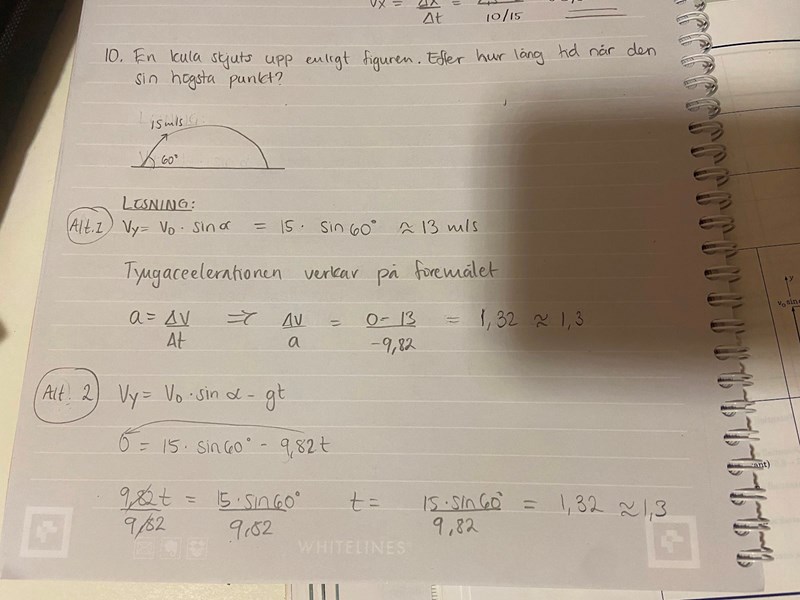 Vx = Δx / Δt =
10/15
10. En kula skjuts upp enligt figuren. Efter hur lång tid når den
sin högsta punkt?
15 m/s
60°
LÖSNING:
Alt.1 Vy = V0 · sin α = 15 · sin 60° ≈ 13 m/s
Tyngaccelerationen verkar på föremålet
a = ΔV / Δt ⇒ ΔV / a = 0 - 13 / -9,82 = 1,32 ≈ 1,3
Alt. 2 Vy = V0 · sin α - gt
0 = 15 · sin 60° - 9,82t
9,82t / 9,82 = 15 · sin 60° / 9,82 t = 15 · sin 60° / 9,82 = 1,32 ≈ 1,3
WHITELINES
y
v0 sin
ant)